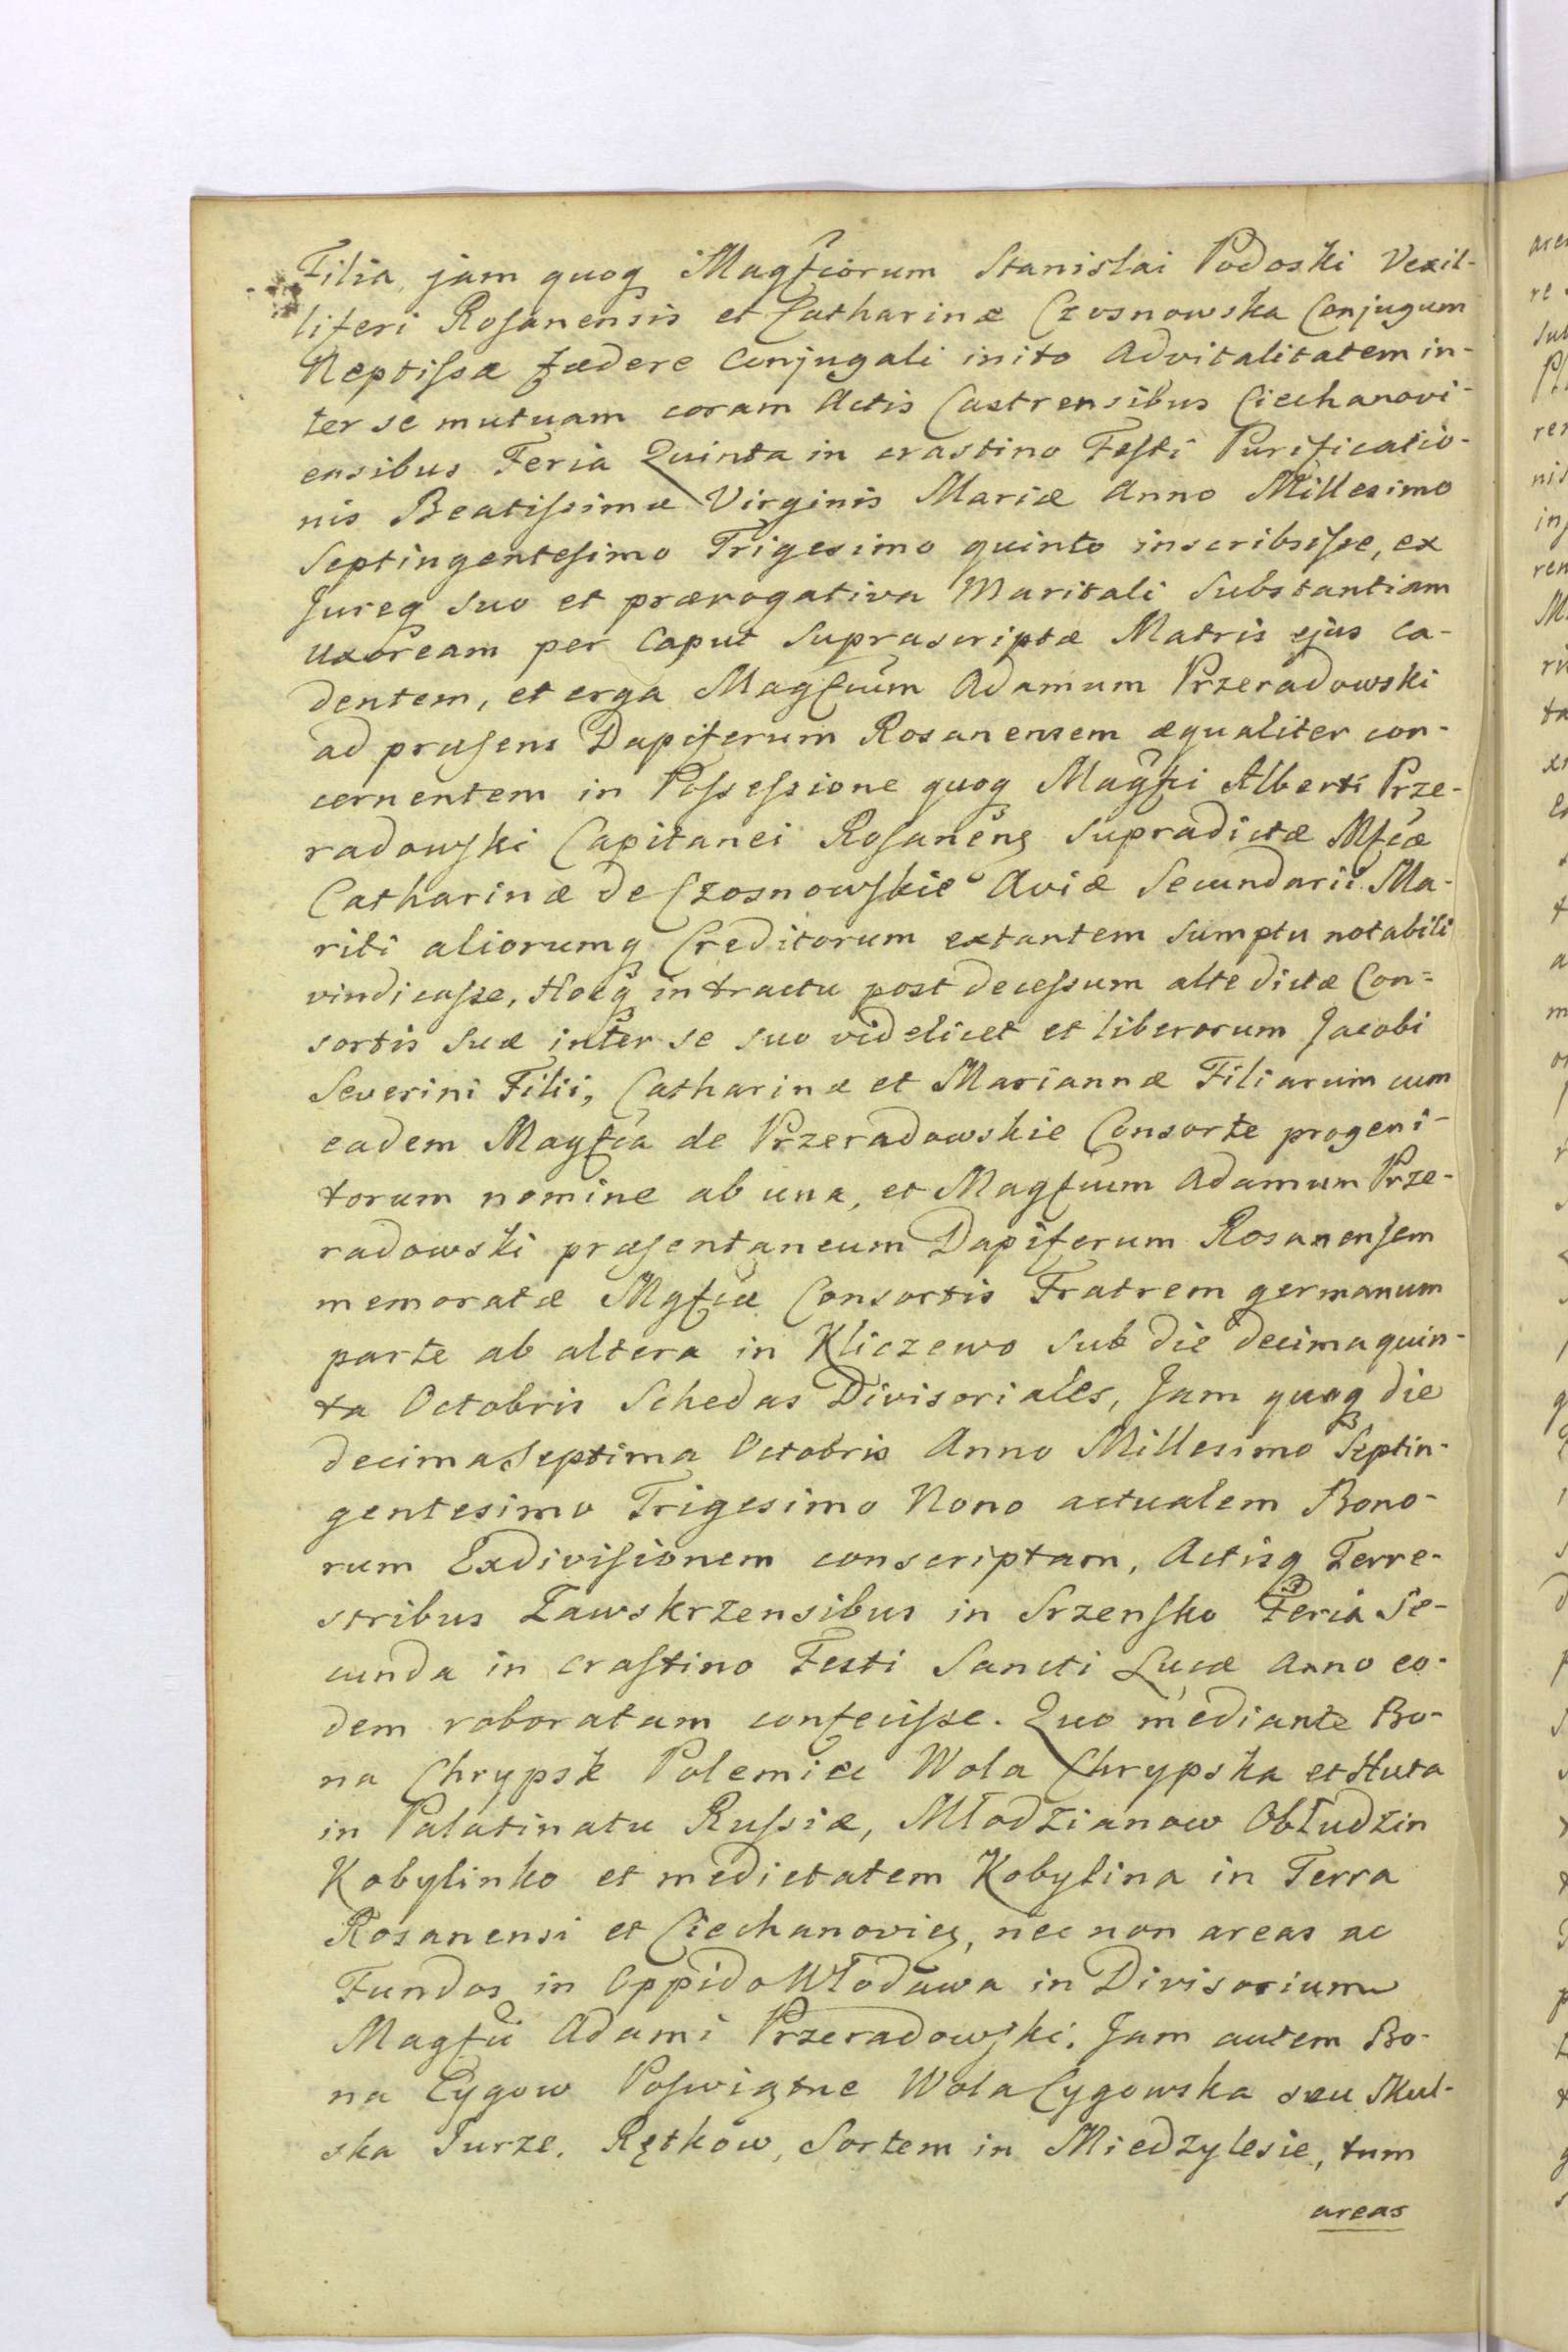 Filia, jam quoq Magficorum Stanislai Podoski Vexil-
liferi Rosanensis et Catharinæ Czosnowska Conjugum
Neptissæ fædere Conjugali inito Advitalitatem in-
ter se mutuam coram Actis Castrensibus Ciechanovi-
ensibus Feria Quinta in crastino Festi Purificatio-
nis Beatissimæ Virginis Mariæ Anno Millesimo
Septingentesimo Trigesimo quinto inscribsisse, ex
Jureq suo et prærogativa Maritali Substantiam
Uxoream per Caput Suprascriptæ Matris ejus ca-
dentem, et erga Magfcum Adamum Przeradowski
ad præsens Dapiferum Rosanensem æqualiter con-
cernentem in Possessione quoq Magfci Alberti Prze-
radowski Capitanei Rosanens supradictæ Mfcæ
Catharinæ de Czosnowskie Aviæ Secundarii Ma-
riti aliorumq Creditorum extantem sumptu notabili
vindicasse, Hocq in tractu post decessum alte dictæ Con-
sortis suæ inter se suo videlicet et liberorum Jacobi
Severini Filii, Catharinæ et Mariannæ Filiarum cum
eadem Magfca de Przeradowskie Consorte progeni-
torum nomine ab una, et Magfcum Adamum Prze-
radowski præsentaneum Dapiferum Rosanensem
memoratæ Mgfcæ Consortis Fratrem germanum
parte ab altera in Kliczewo sub die decima quin-
ta Octobris Schedas Divisoriales, Jam quoq die
decima Septima Octobris Anno Millesimo Septin-
gentesimo Trigesimo Nono actualem Bono-
rum Exdivisionem conscriptam, Actisq Terre-
stribus Zawskrzensibus in Szrensko Feria Se-
cunda in crastino Festi Sancti Lucæ Anno eo-
dem roboratam confecisse. Quo mediante Bo-
na Chrypsk Polemice Wola Chrypska et Huta
in Palatinatu Russiæ, Młodzianow Obłudzin
Kobylinko et medietatem Kobylina in Terra
Rosanensi et Ciechanovien, nec non areas ac
Fundos in Oppido Włodawa in Divisorium
Magfci Adami Przeradowski. Jam autem Bo-
na Cygow Poswiętne Wola Cygowska seu Mul-
ska Turze, Rętkow, Sortem in Miedzylesie, tum
areas